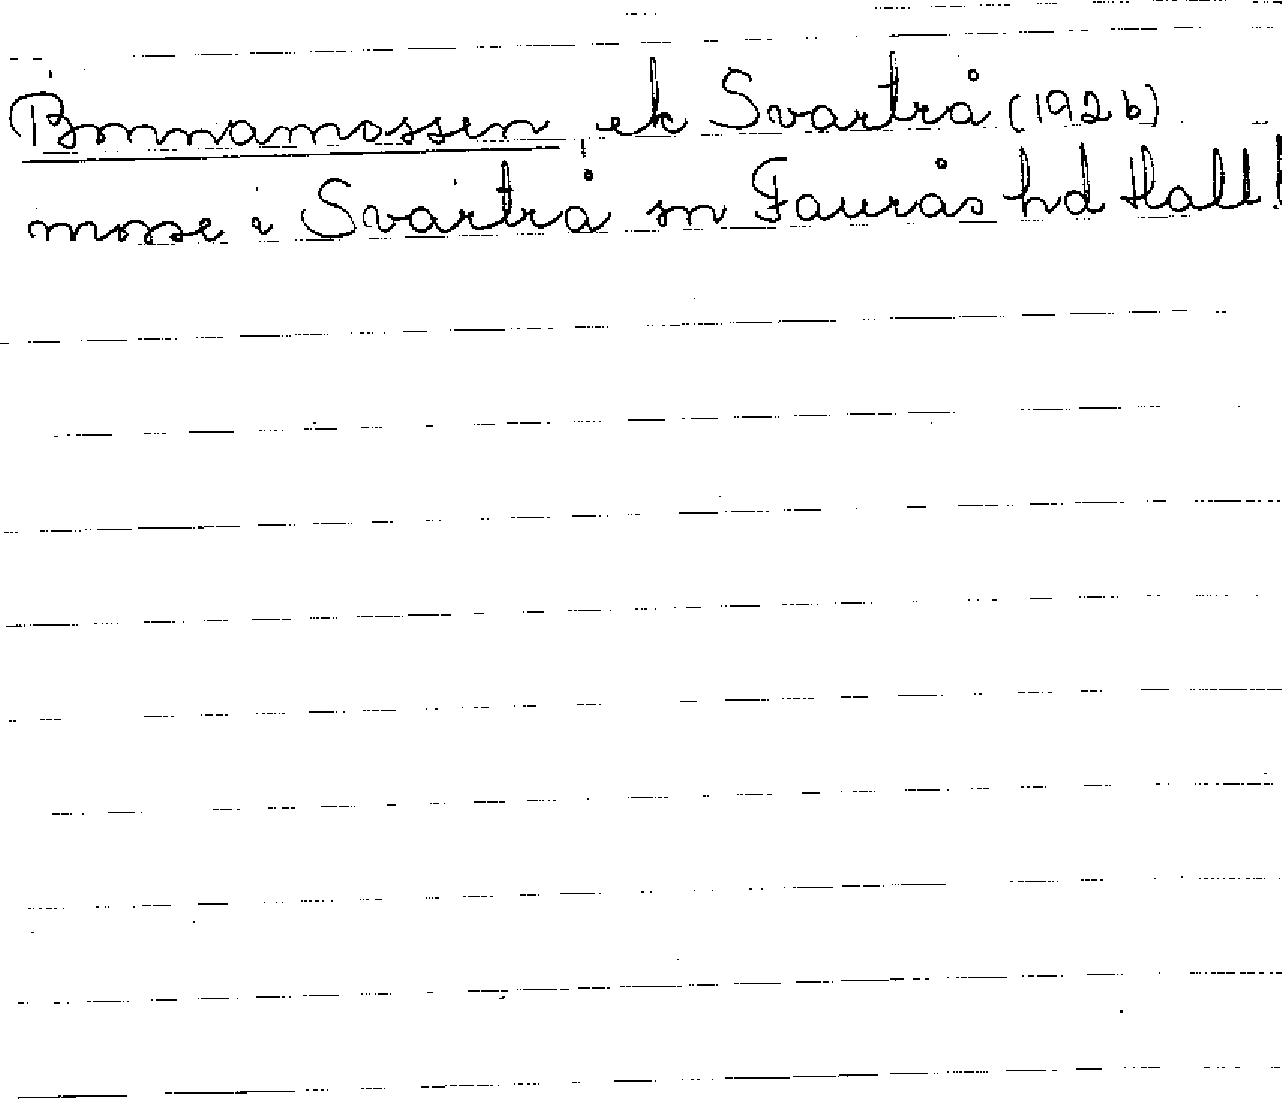 Bonnamossen, ek Svartrå (1926)
mosse i Svartrå sn Faurås hd Hall!